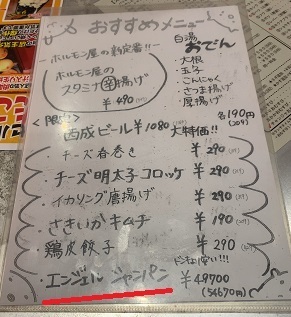 おすすめメニュー
ホルモン屋の新定番!!
ホルモン屋の
スタミナ辛揚げ
¥490
白湯
おでん
大根
玉子
こんにゃく
さつま揚げ
厚揚げ
各190円
西成ビール ¥1080 大特価!!
・チーズ春巻き ¥290
・チーズ明太子コロッケ ¥290
・イカソング唐揚げ ¥290
・さきいかキムチ ¥190
・鶏皮餃子 ¥290
・エンジェル シャンパン ¥49700
(54670円)